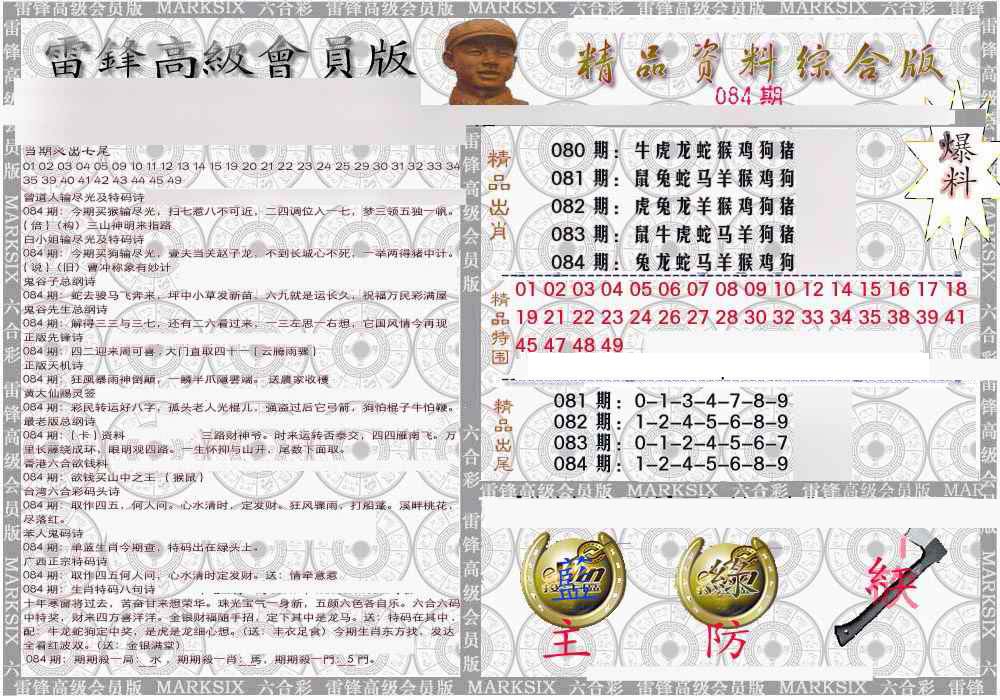 雷锋高级会员版 MARKSIX 六合彩 雷锋高级会员版 MARKSIX 六合彩 雷锋高级会员版 MARKSIX 六合彩 雷锋
雷鋒高級會員版
精品资料综合版
084 期
爆料
01 02 03 04 05 09 10 11 12 13 14 15 19 20 21 22 23 24 25 29 30 31 32 33 34
35 39 40 41 42 43 44 45 49
曾道人输尽光及特码诗
084 期：今期买猴输尽光，扫七惹八不可近，二四调位入一七，梦三领五独一帆。
{ 倍 }（构）三山神明来指路
白小姐输尽光及特码诗
084 期：今期买狗输尽光，壹夫当关赵子龙，不到长城心不死，一举两得猪中计。
{ 说 }（旧）曹冲称象有妙计
鬼谷子总纲诗
084 期：蛇去骏马飞奔来，坪中小草发新苗，六九就是运长久，祝福万民彩满屋
鬼谷先生总纲诗
084 期：解得三三与三七，还有二六看过来，一三左思一右想，它国风情今再现
正版先锋诗
084 期：四二迎来周可喜，大门直取四十一 { 云腾雨骤 }
正版天机诗
084 期：狂風暴雨神倒顛，一鱗半爪隱雲端。 送農家收樓
黄大仙赐灵签
084 期：彩民转运好八字，孤头老人光棍儿，强盗过后它弓箭，狗怕棍子牛怕鞭。
最老版总纲诗
084 期：{ 卡 } 资料 三路财神爷。时来运转否泰交，四四雁南飞。万
里长藤绕成环，眼明观四路。一生怀抑与山开，尾数下面取。
香港六合欲钱料
084 期：欲钱买山中之王 { 猴鼠 }
台湾六合彩码头诗
084 期：取怍四五，何人问。心水清时，定发财。狂风骤雨，打船蓬。溪畔桃花，
尽落红。
苯人鬼码诗
084 期：单蓝生肖今期查，特码出在绿头上。
广西正宗特码诗
084 期：取怍四五何人问，心水清时定发财。送：情牵意惹
084 期：生肖特码八句诗
十年寒窗将过去，苦奋日来想荣华。珠光宝气一身新，五颜六色各自乐。六合六码
中特奖，财来四方喜洋洋。金银财福随手招，定下其中是龙马。送：特码在其中，
配：牛龙蛇狗定中奖，是虎是龙细心想。（送：丰衣足食）今期生肖东方找，发达
全看红波双。（送：金银满堂）
084 期：期期殺一局：水，期期殺一肖：馬，期期殺一門：5 門。
精品出肖
080 期：牛虎龙蛇猴鸡狗猪
081 期：鼠兔蛇马羊猴鸡狗
082 期：虎兔龙羊猴鸡狗猪
083 期：鼠牛虎蛇马羊狗猪
084 期：兔龙蛇马羊猴鸡狗
精品特围
01 02 03 04 05 06 07 08 09 10 12 14 15 16 17 18
19 21 22 23 24 26 27 28 30 32 33 34 35 38 39 41
45 47 48 49
精品出尾
081 期：0-1-3-4-7-8-9
082 期：1-2-4-5-6-8-9
083 期：0-1-2-4-5-6-7
084 期：1-2-4-5-6-8-9
雷锋高级会员版 MARKSIX 六合彩 雷锋高级会员版 MAR
藍 綠 殺
主 防
雷锋高级会员版 MARKSIX 六合彩 雷锋高级会员版 MARKSIX 六合彩 雷锋高级会员版 MARKSIX 六合彩 雷锋